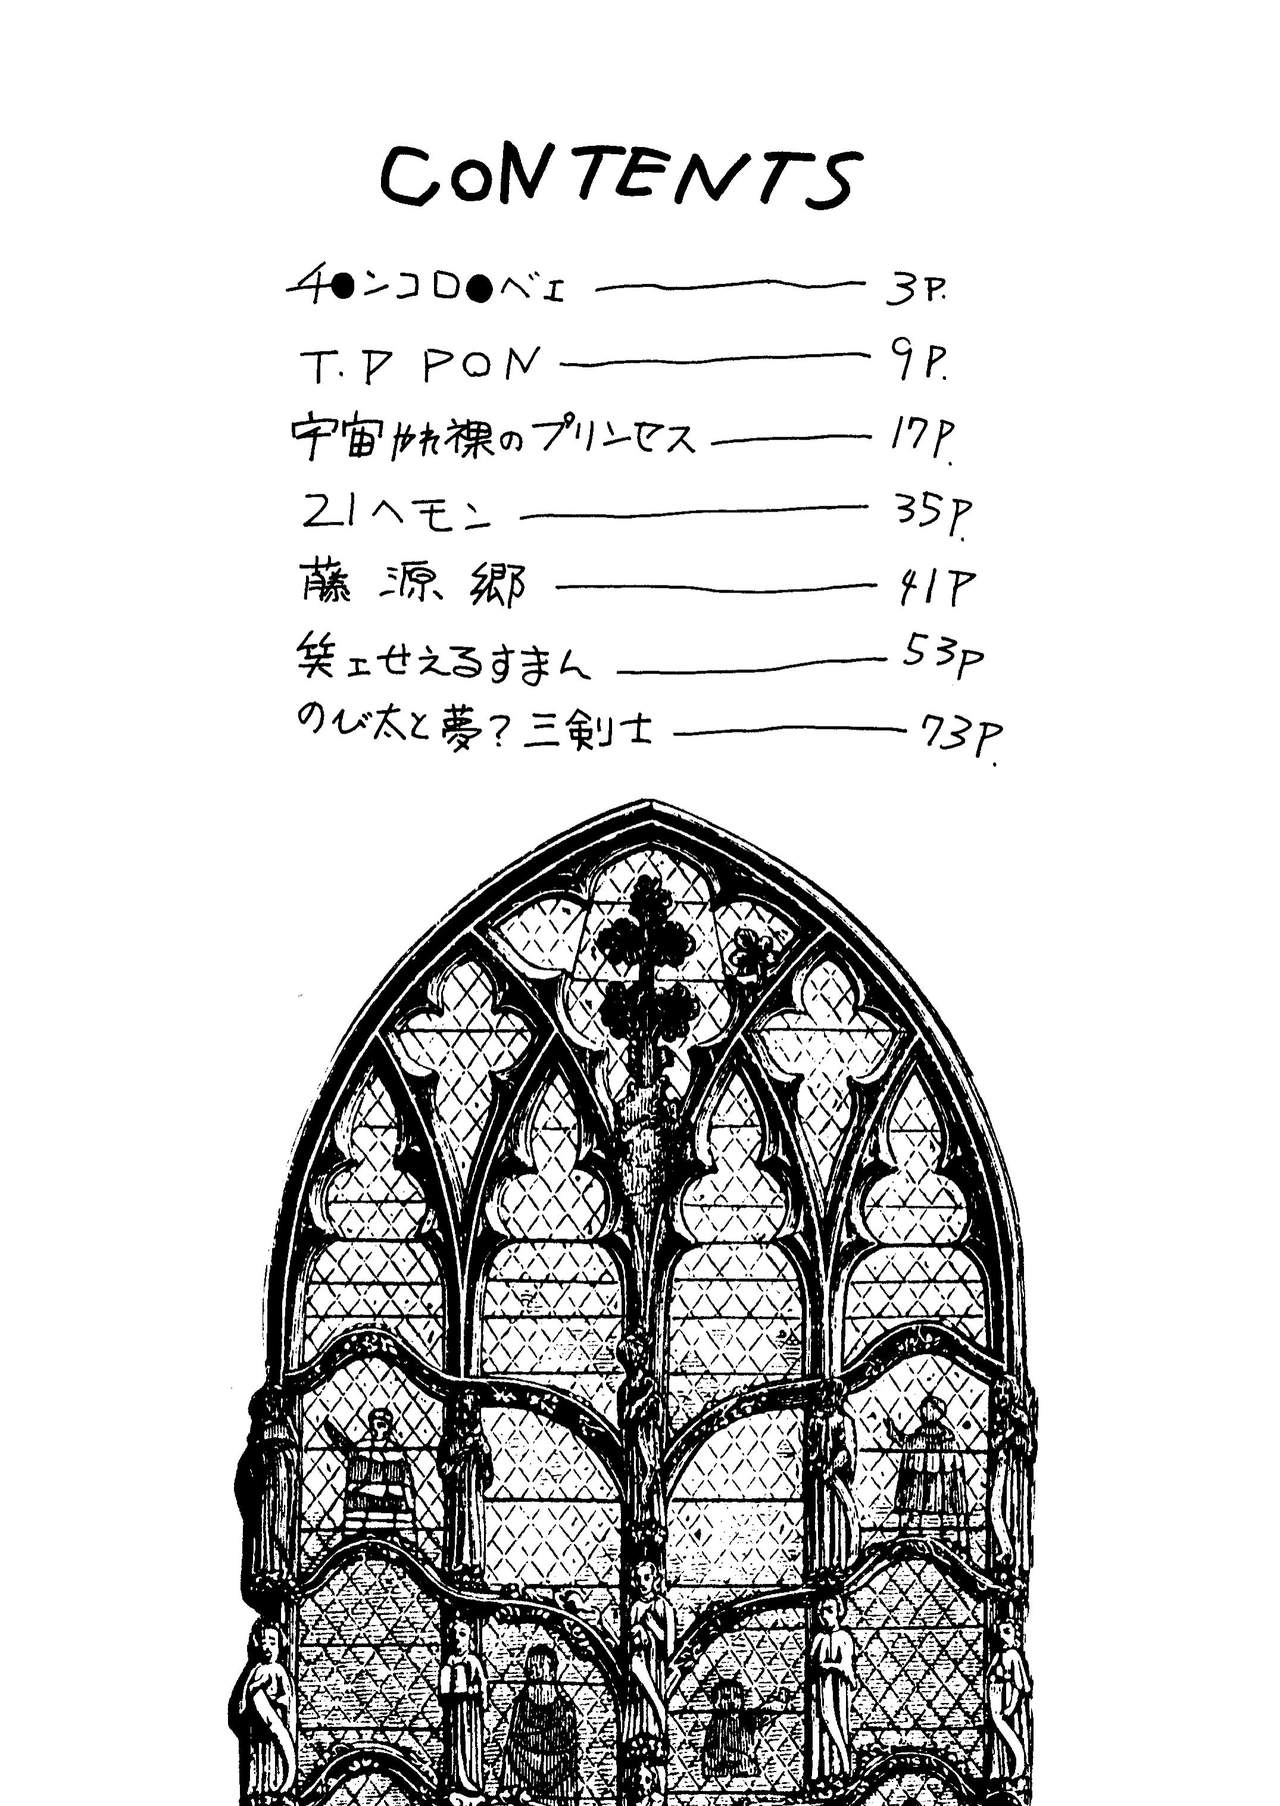 CONTENTS
チ●ンコロ●ベェ ── 3P.
T.P PON ── 9P.
宇宙やれ裸のプリンセス ── 17P.
21ヘモン ── 35P.
藤源郷 ── 41P
笑ェせえるすまん ── 53P
のび太と夢?三剣士 ── 73P.